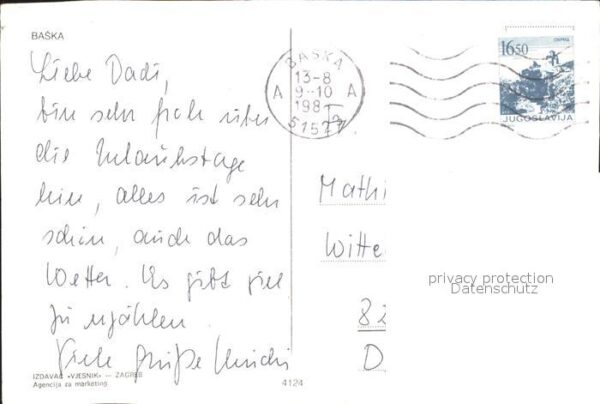 BAŠKA
Liebe Dadi,
bin sehr froh über
die Urlaubstage
hier, alles ist sehr
schön, auch das
Wetter. Es gibt viel
zu erzählen
Viele Grüße
IZDAVAČ «VJESNIK» — ZAGREB
Agencija za marketing
4124
BAŠKA
13-8
A 9-10 A
198
16,50
JUGOSLAVIJA
Mathi
Witte
82
D
privacy protection
Datenschutz